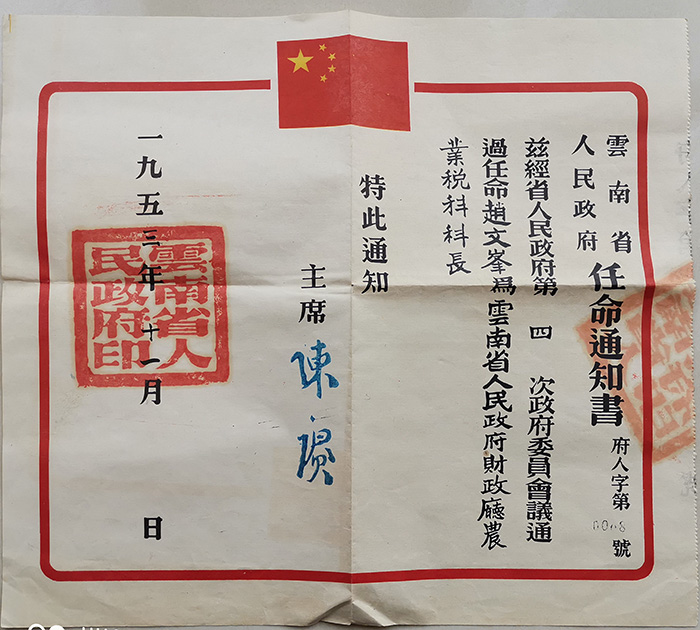 雲南省
人民政府
任命通知書
府人字第0008號
茲經省人民政府第 四 次政府委員會議通
過任命趙文峯爲雲南省人民政府財政廳農
業税科科長
特此通知
主席 陳賡
一九五三年十一月 日
雲南省人民政府印